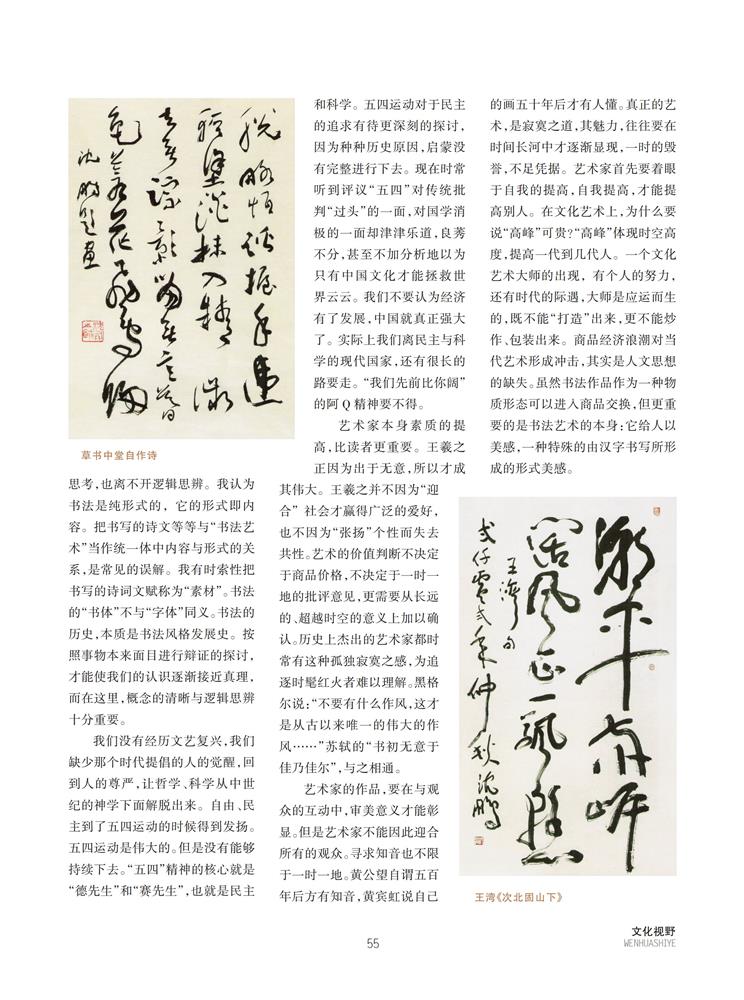 沈鹏题画
草书中堂自作诗
思考,也离不开逻辑思辨。我认为
书法是纯形式的，它的形式即内
容。把书写的诗文等等与“书法艺
术”当作统一体中内容与形式的关
系,是常见的误解。我有时索性把
书写的诗词文赋称为“素材”。书法
的“书体”不与“字体”同义。书法的
历史,本质是书法风格发展史。按
照事物本来面目进行辩证的探讨,
才能使我们的认识逐渐接近真理,
而在这里,概念的清晰与逻辑思辨
十分重要。
我们没有经历文艺复兴,我们
缺少那个时代提倡的人的觉醒,回
到人的尊严,让哲学、科学从中世
纪的神学下面解脱出来。自由、民
主到了五四运动的时候得到发扬。
五四运动是伟大的。但是没有能够
持续下去。“五四”精神的核心就是
“德先生”和“赛先生”,也就是民主
和科学。五四运动对于民主
的追求有待更深刻的探讨,
因为种种历史原因,启蒙没
有完整进行下去。现在时常
听到评议“五四”对传统批
判“过头”的一面,对国学消
极的一面却津津乐道,良莠
不分,甚至不加分析地以为
只有中国文化才能拯救世
界云云。我们不要认为经济
有了发展,中国就真正强大
了。实际上我们离民主与科
学的现代国家,还有很长的
路要走。“我们先前比你阔”
的阿Q精神要不得。
艺术家本身素质的提
高,比读者更重要。王羲之
正因为出于无意,所以才成
其伟大。王羲之并不因为“迎
合”社会才赢得广泛的爱好,
也不因为“张扬”个性而失去
共性。艺术的价值判断不决定
于商品价格,不决定于一时一
地的批评意见,更需要从长远
的、超越时空的意义上加以确
认。历史上杰出的艺术家都时
常有这种孤独寂寞之感,为追
逐时髦红火者难以理解。黑格
尔说:“不要有什么作风,这才
是从古以来唯一的伟大的作
风……”苏轼的“书初无意于
佳乃佳尔”,与之相通。
艺术家的作品,要在与观
众的互动中,审美意义才能彰
显。但是艺术家不能因此迎合
所有的观众。寻求知音也不限
于一时一地。黄公望自谓五百
年后方有知音,黄宾虹说自己
的画五十年后才有人懂。真正的艺
术,是寂寞之道,其魅力,往往要在
时间长河中才逐渐显现,一时的毁
誉,不足凭据。艺术家首先要着眼
于自我的提高,自我提高,才能提
高别人。在文化艺术上,为什么要
说“高峰”可贵?“高峰”体现时空高
度,提高一代到几代人。一个文化
艺术大师的出现，有个人的努力,
还有时代的际遇,大师是应运而生
的,既不能“打造”出来,更不能炒
作、包装出来。商品经济浪潮对当
代艺术形成冲击,其实是人文思想
的缺失。虽然书法作品作为一种物
质形态可以进入商品交换,但更重
要的是书法艺术的本身:它给人以
美感,一种特殊的由汉字书写所形
成的形式美感。
潮平两岸
阔风正一帆悬
王湾句
弍仟零弍年仲秋沈鹏
王湾《次北固山下》
55
文化视野
WENHUASHIYE